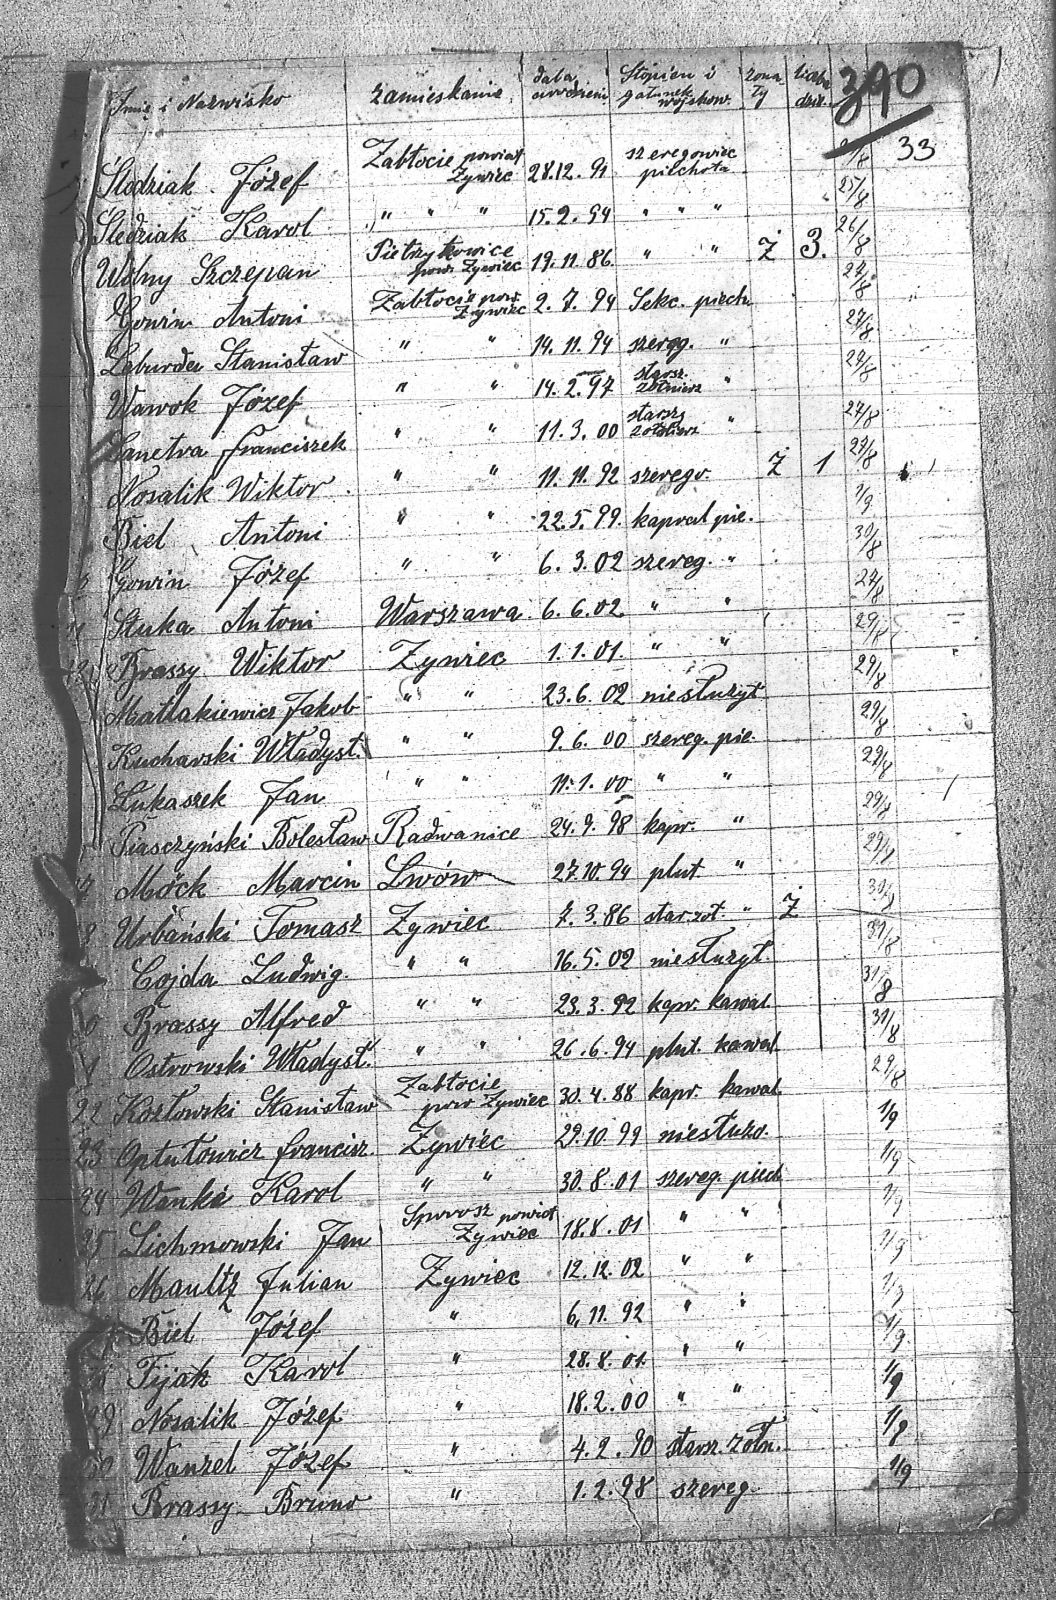 Imię i Nazwisko zamieszkanie data urodzeni Stopien i gatunek wojskow. żona ty liczba dzie. 390
33
Śledziak Józef Zabłocie powiat Zywiec 28.12.91 szeregowiec piechota 2/8
Śledziak Karol " " " 15.2.94 " " " 25/8
Wolny Szczepan Pietrzykowice pow. Zywiec 19.11.86. " " Ż 3. 26/8
Gowin Antoni Zabłocie pow. Zywiec 2.7.94 Sekc. piech. 27/8
Laburda Stanisław " " 14.11.94 szereg. " 27/8
Wawok Józef " " 14.2.97 starsz. żołnierz " 27/8
Sanetra Franciszek " " 11.3.00 starsz żołnierz " 27/8
Nosalik Wiktor " " 11.11.92 szerego. Ż 1 27/8
Biel Antoni " " 22.5.99. kapral pie. 1/9
Gowin Józef " " 6.3.02 szereg. " 30/8
11 Stuka Antoni Warszawa 6.6.02 " " 27/8
12 Brassy Wiktor Zywiec 1.1.01. " " 29/8
Matlakiewicz Jakob " " 23.6.02 niesłużył 29/8
Kucharski Władysł. " " 9.6.00 szereg. pie. 29/8
Lukaszek Jan " " 11.1.00 " " 29/8
Piasczyński Bolesław Radwanice 24.9.98 kapr. " 29/8
17 Möck Marcin Lwów 27.10.94 plut " 29/8
8 Urbański Tomasz Zywiec 7.3.86 star.żoł. " Ż 30/8
Cojda Ludwig. " " 16.5.02 niesłużył. 31/8
0 Brassy Alfred " " 23.3.92 kapr. kawal. 31/8
1 Ostrowski Władysł. " " 26.6.94 plut. kawal. 31/8
22 Kozłowski Stanisław Zabłocie pow Zywiec 30.4.88 kapr. kawal. 29/8
23 Optułowicz Francisz. Zywiec 29.10.99 niesłużo. 1/9
24 Wanke Karol " " 30.8.01 szereg. piech 1/9
25 Lichmowski Jan powiat Zywiec 18.8.01 " "
26 Maultz Julian Zywiec 12.12.02 " "
27 Biel Józef " 6.11.92 " " 1/9.
Fijak Karol " 28.8.01. " " 1/9
29 Nosalik Józef " 18.2.00 " " 1/9
30 Wanzel Józef " 4.2.90 starsz. żołn. 1/9
31 Brassy Bruno " 1.2.98 szereg. 1/9